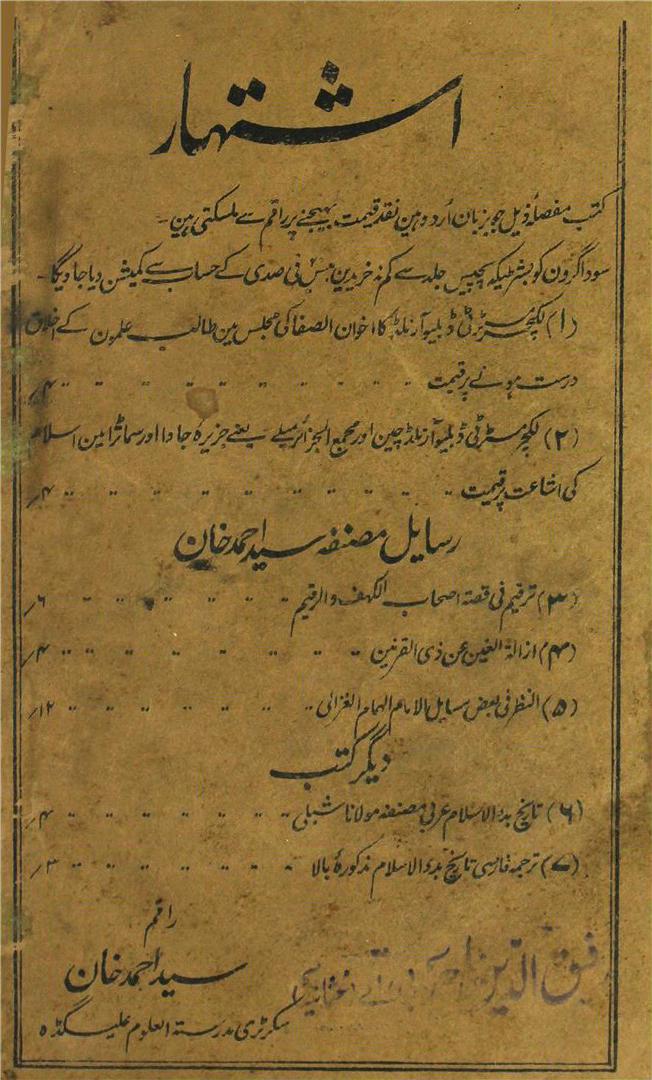 اشتہار
کتب مفصلہ ذیل جو بزبان اُردو ہین نقد قیمت بھیجنے پر راقم سے ملسکتی ہین۔
سوداگرون کو بشرطیکہ پچیس جلد سے کم نہ خریدین بیس فی صدی کے حساب سے کمیشن دیا جاویگا۔
(۱) لکچر مسٹر ٹی ڈبلیو آرنلڈ کا اخوان الصفا کی مجلس مین طالب علمون کے اخلاق
درست ہونے پر قیمت ۴؍
(۲) لکچر مسٹر ٹی ڈبلیو آرنلڈ چین اور مجمع الجزائر میلے یعنے جزیرہ جاوا اور سماٹرا مین اسلام
کی اشاعت پر قیمت ۴؍
رسایل مصنفہ سید احمد خان
(۳) ترقیم فی قصۃ اصحاب الکہف والرقیم ۶؍
(۴) ازالۃ الغین عن ذی القرنین ۴؍
(۵) النظر فی بعض مسایل الامام الہمام الغزالی ۱۲؍
دیگر کتب
(۶) تاریخ بدء الاسلام عربی مصنفہ مولانا شبلی ۴؍
(۷) ترجمہ فارسی تاریخ بدء الاسلام مذکورۂ بالا ۳؍
راقم
سید احمد خان
سکرٹری مدرسۃ العلوم علیگڈہ